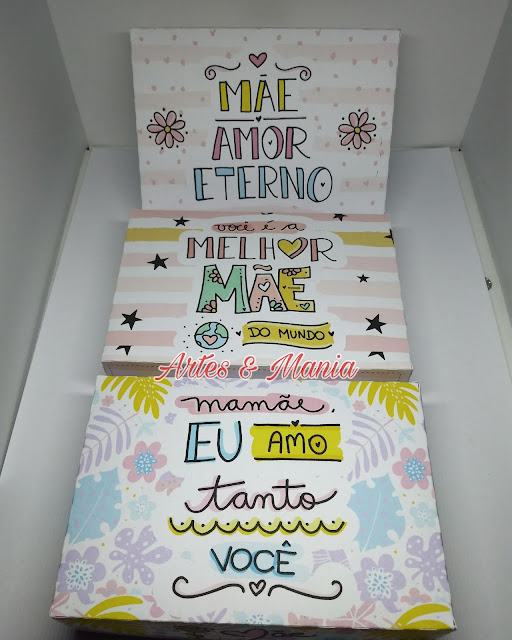 MÃE
AMOR
ETERNO
você é a
MELHOR
MÃE
DO MUNDO
Artes & Mania
mamãe,
EU AMO
tanto
VOCÊ
Mãe